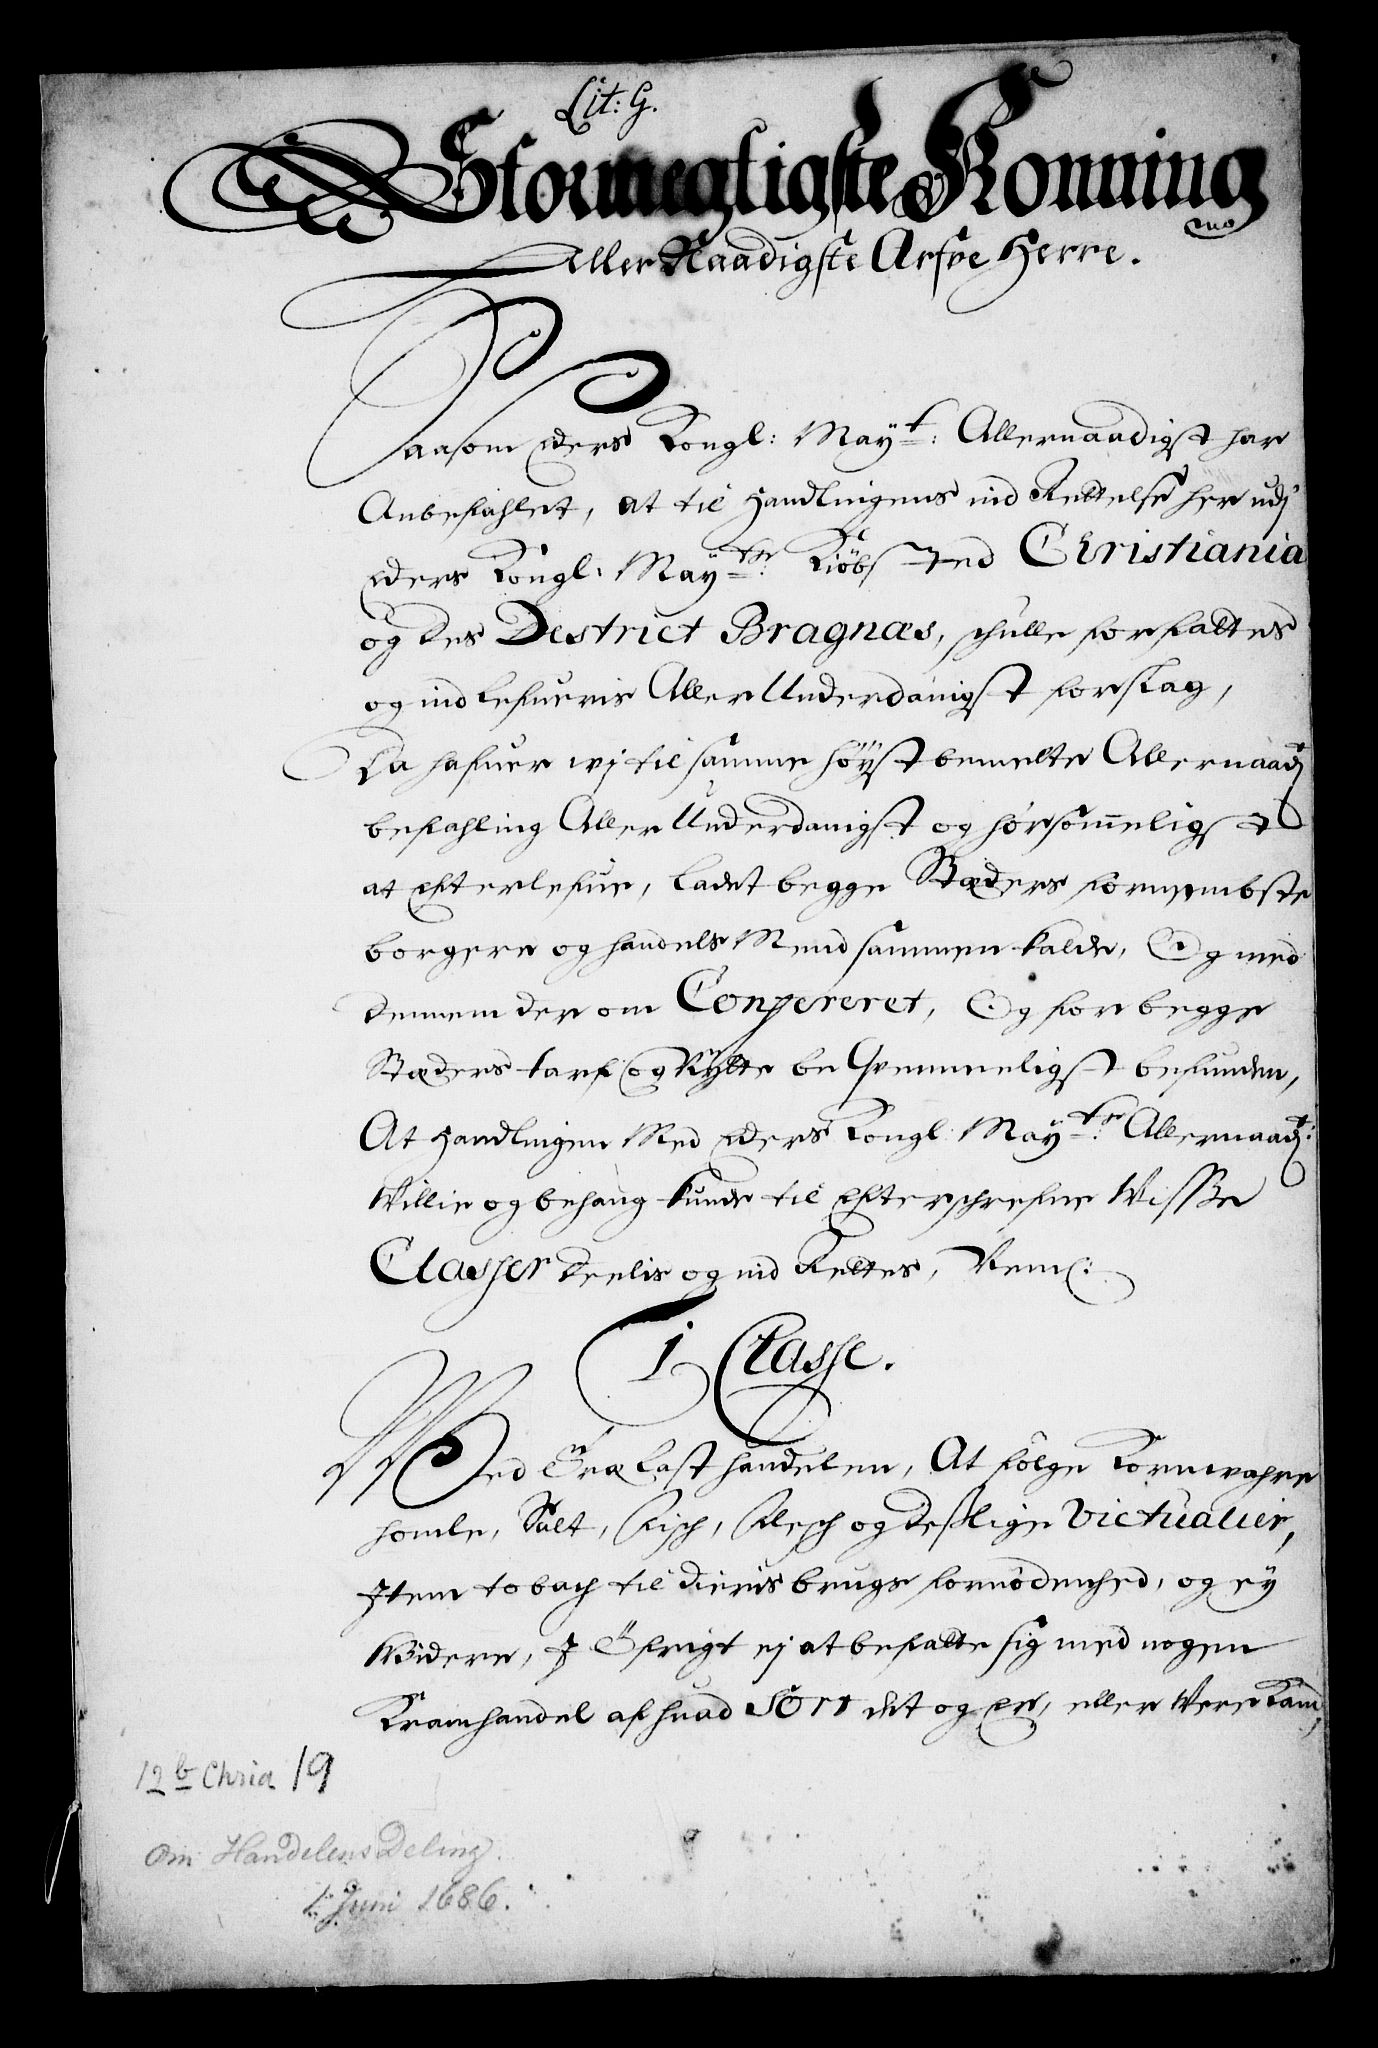 Lit: G.
Stormegtigste Konning
Aller Naadigste Arfve Herre.
Saasom Eders Kongl: Mayt: Allernaadigst har
Anbefahlet, at til Handlingens ind Rettelse her udj
Eders Kongl: Mayts: Kiöbsted Christiania
og des Destrict Bragnæs, schulle forfattes
og indlefueris Aller Underdanigst forslag,
Da hafuer wj til samme höyst bemelte Allernaad:
befahling Aller Underdanigst og hörsommeligst
at Efterlefue, ladet begge Stæders fornembste
borgere og handels Mend sammen kalde, Og med
dennem der om Confereret, Og for begge
Stæders tarf og Nytte beqvemmeligst befunden,
At Handlingen Med Eders Kongl: Mayts: Allernaad:
Villie og behaug kunde til Efterschrefne Wisse
Classer deelis og ind Rettes, Neml:
1 Classe.
Med Træ Last handelen, At fölge Kornwahre
homle, Salt, Fisch, Flesch og deslige Victualier,
Item tobach til dieris brugs fornödenhed, og ey
Widere, I Öfrigt ej at befatte sig med nogen
Kramhandel af huad Sort det og er, eller Were Kand,
12 b Chria 19
Om Handelens Deling.
1. Juni 1686.